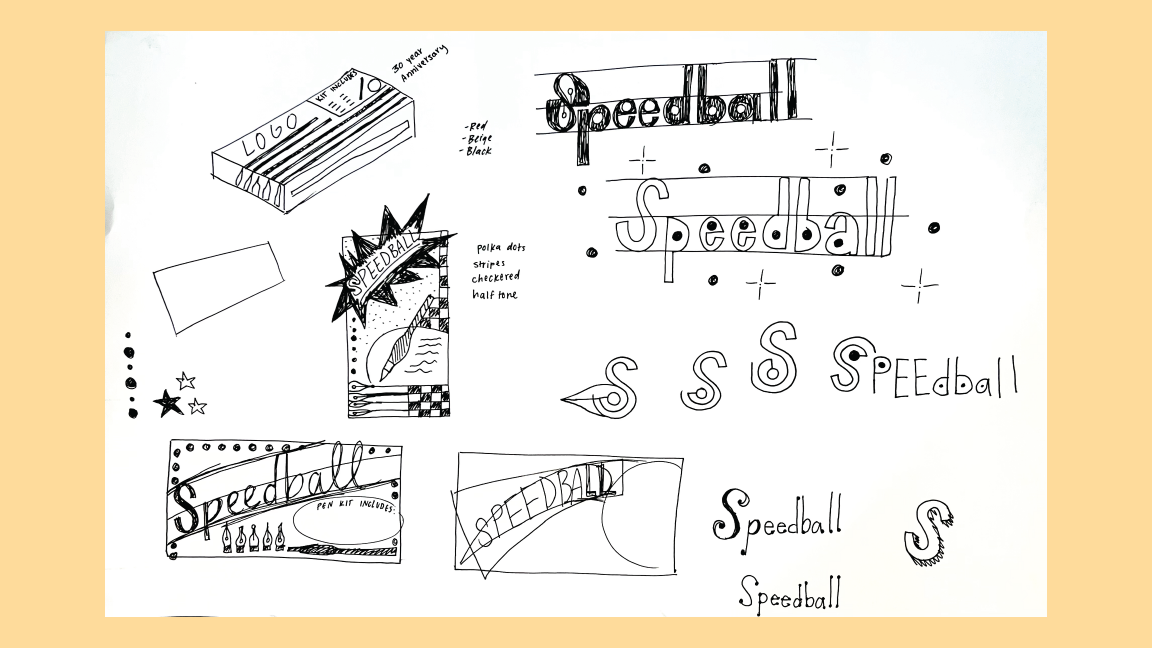 30 year
Anniversary
KIT INCLUDES
LOGO
-Red
-Beige
-Black
Speedball
Speedball
SPEEDBALL
polka dots
stripes
checkered
half tone
S
S
S
SPEEdball
Speedball
PEN KIT INCLUDES:
SPEEDBALL
Speedball
S
Speedball